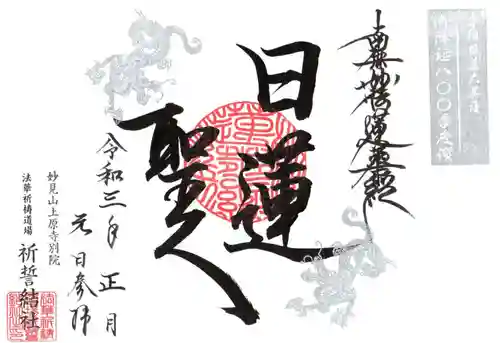 南無妙法蓮華経
日蓮
聖人
令和三年 正月
元日参拝
妙見山上原寺別院
法華祈祷道場
祈誓結社